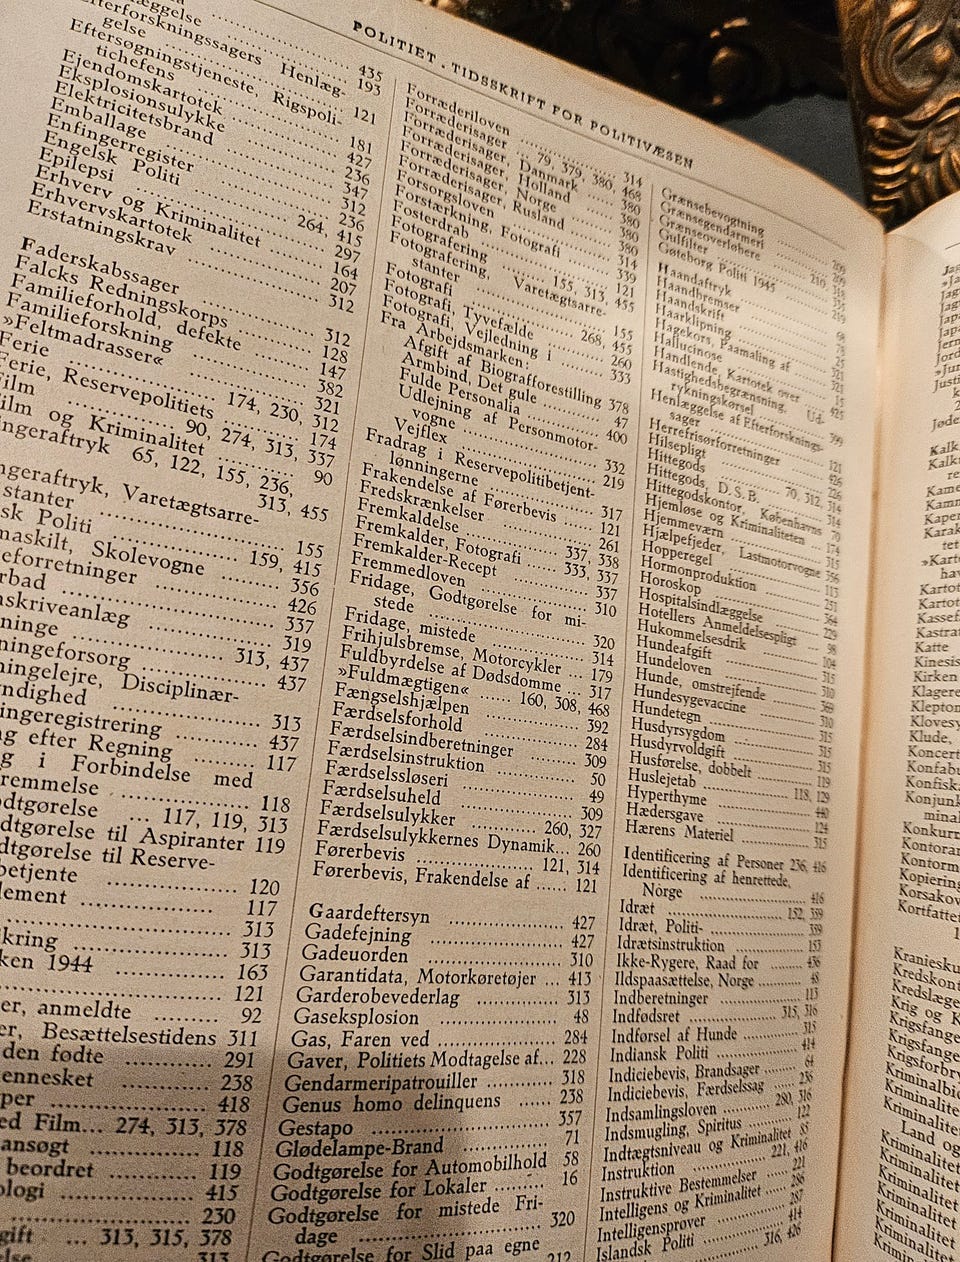 POLITIET · TIDSSKRIFT FOR POLITIVÆSEN
æggelse 435
Efterforskningssagers Henlæg-
gelse 193
Eftersøgningstjeneste, Rigspoli-
tichefens 121
Ejendomskartotek 181
Eksplosionsulykke 427
Elektricitetsbrand 236
Emballage 347
Enfingerregister 312
Engelsk Politi 236
Epilepsi 264, 415
Erhverv og Kriminalitet 297
Erhvervskartotek 164
Erstatningskrav 207
312
Faderskabssager 312
Falcks Redningskorps 128
Familieforhold, defekte 147
Familieforskning 382
»Feltmadrasser« 321
Ferie 174, 230, 312
Ferie, Reservepolitiets 174
Film 90, 274, 313, 337
Film og Kriminalitet 90
ngeraftryk 65, 122, 155, 236,
313, 455
ngeraftryk, Varetægtsarre-
stanter 155
sk Politi 159, 415
maskilt, Skolevogne 356
eforretninger 426
rbad 337
nskriveanlæg 319
ninge 313, 437
ningeforsorg 437
ningelejre, Disciplinær-
ndighed 313
ingeregistrering 437
g efter Regning 117
g i Forbindelse med
remmelse 118
odtgørelse ... 117, 119, 313
dtgørelse til Aspiranter 119
dtgørelse til Reserve-
betjente 120
lement 117
313
kring 313
ken 1944 163
121
er, anmeldte 92
er, Besættelsestidens 311
den fødte 291
ennesket 238
per 418
ed Film... 274, 313, 378
ansøgt 118
beordret 119
ologi 415
230
gift ... 313, 315, 378
lse 313
Forræderiloven 314
Forræderisager 79, 379, 380, 468
Forræderisager, Danmark 380
Forræderisager, Holland 380
Forræderisager, Norge 380
Forræderisager, Rusland 380
Forsorgsloven 314
Forstærkning, Fotografi 339
Fosterdrab 121
Fotografering 155, 313, 455
Fotografering, Varetægtsarre-
stanter 155
Fotografi 268, 455
Fotografi, Tyvefælde 260
Fotografi, Vejledning i 333
Fra Arbejdsmarken:
Afgift af Biografforestilling 378
Armbind, Det gule 47
Fulde Personalia 400
Udlejning af Personmotor-
vogne 332
Vejflex 219
Fradrag i Reservepolitibetjent-
lønningerne 317
Frakendelse af Førerbevis 121
Fredskrænkelser 261
Fremkaldelse 337, 338
Fremkalder, Fotografi 333, 337
Fremkalder-Recept 337
Fremmedloven 310
Fridage, Godtgørelse for mi-
stede 320
Fridage, mistede 314
Frihjulsbremse, Motorcykler 179
Fuldbyrdelse af Dødsdomme 317
»Fuldmægtigen« 160, 308, 468
Fængselshjælpen 392
Færdselsforhold 284
Færdselsindberetninger 309
Færdselsinstruktion 50
Færdselssløseri 49
Færdselsuheld 309
Færdselsulykker 260, 327
Færdselsulykkernes Dynamik... 260
Førerbevis 121, 314
Førerbevis, Frakendelse af 121
Gaardeftersyn 427
Gadefejning 427
Gadeuorden 310
Garantidata, Motorkøretøjer 413
Garderobevederlag 313
Gaseksplosion 48
Gas, Faren ved 284
Gaver, Politiets Modtagelse af... 228
Gendarmeripatrouiller 318
Genus homo delinquens 238
Gestapo 357
Glødelampe-Brand 71
Godtgørelse for Automobilhold 58
Godtgørelse for Lokaler 16
Godtgørelse for mistede Fri-
dage 320
Godtgørelse for Slid paa egne
212
Grænsebevogtning 209
Grænsegendarmeri 210, 209
Grænseoverløbere
Gulfilter
Gøteborg Politi 1945
Haandaftryk
Haandbremser
Haandskrift
Haarklipning
Hagekors, Paamaling af
Hallucinose
Handlende, Kartotek over 15
Hastighedsbegrænsning, Ud-
rykningskørsel 399
Henlæggelse af Efterforsknings-
sager 121
Herrefrisørforretninger 426
Hilsepligt 226
Hittegods 70, 312, 314
Hittegods, D. S. B. 314
Hittegodskontor, Københavns 70
Hjemløse og Kriminaliteten 174
Hjemmeværn 315
Hjælpefjeder, Lastmotorvogne 356
Hopperegel 113
Hormonproduktion 251
Horoskop 364
Hospitalsindlæggelse 229
Hotellers Anmeldelsespligt 98
Hukommelsesdrik 104
Hundeafgift 315
Hundeloven 310
Hunde, omstrejfende 369
Hundesygevaccine 310
Hundetegn 315
Husdyrsygdom 315
Husdyrvoldgift 315
Husførelse, dobbelt 119
Huslejetab 118, 129
Hyperthyme 440
Hædersgave 124
Hærens Materiel 315
Identificering af Personer 236, 416
Identificering af henrettede,
Norge 416
Idræt 152, 339
Idræt, Politi- 339
Idrætsinstruktion 153
Ikke-Rygere, Raad for 436
Ildspaasættelse, Norge 48
Indberetninger 113
Indfødsret 315, 316
Indførsel af Hunde 315
Indiansk Politi 414
Indiciebevis, Brandsager 64
Indiciebevis, Færdselssag 236
Indsamlingsloven 280, 316
Indsmugling, Spiritus 122
Indtægtsniveau og Kriminalitet 85
Instruktion 221, 416
Instruktive Bestemmelser 221
Intelligens og Kriminalitet 286
Intelligensprøver 287
Islandsk Politi 414
316, 426
Jag
»Ja
Jag
Jap
Jap
Jern
Jord
»Jur
Justi
k
2
Jøde
Kalk,
Kalku
re
Kame
Kamn
Kaper
Karak
tet
»Karto
hav
Kartot
Kartot
Kassef
Kastra
Katte
Kinesis
Kirken
Klagere
Klepton
Klovesy
Klude,
Koncert
Konfabu
Konfiska
Konjunk
minal
Konkurr
Kontoran
Kontorm
Kopiering
Korsakov
Kortfattet
1
Kranieskul
Kredskont
Kredslæge
Krig og K
Krigsfange
Krigsfange
Krigsforbry
Kriminalbi
Kriminalite
Kriminalitet
Land og
Kriminalitet
Kriminalitet
Kriminalitet
Kriminalitet
Kriminalitet
Kriminalitet